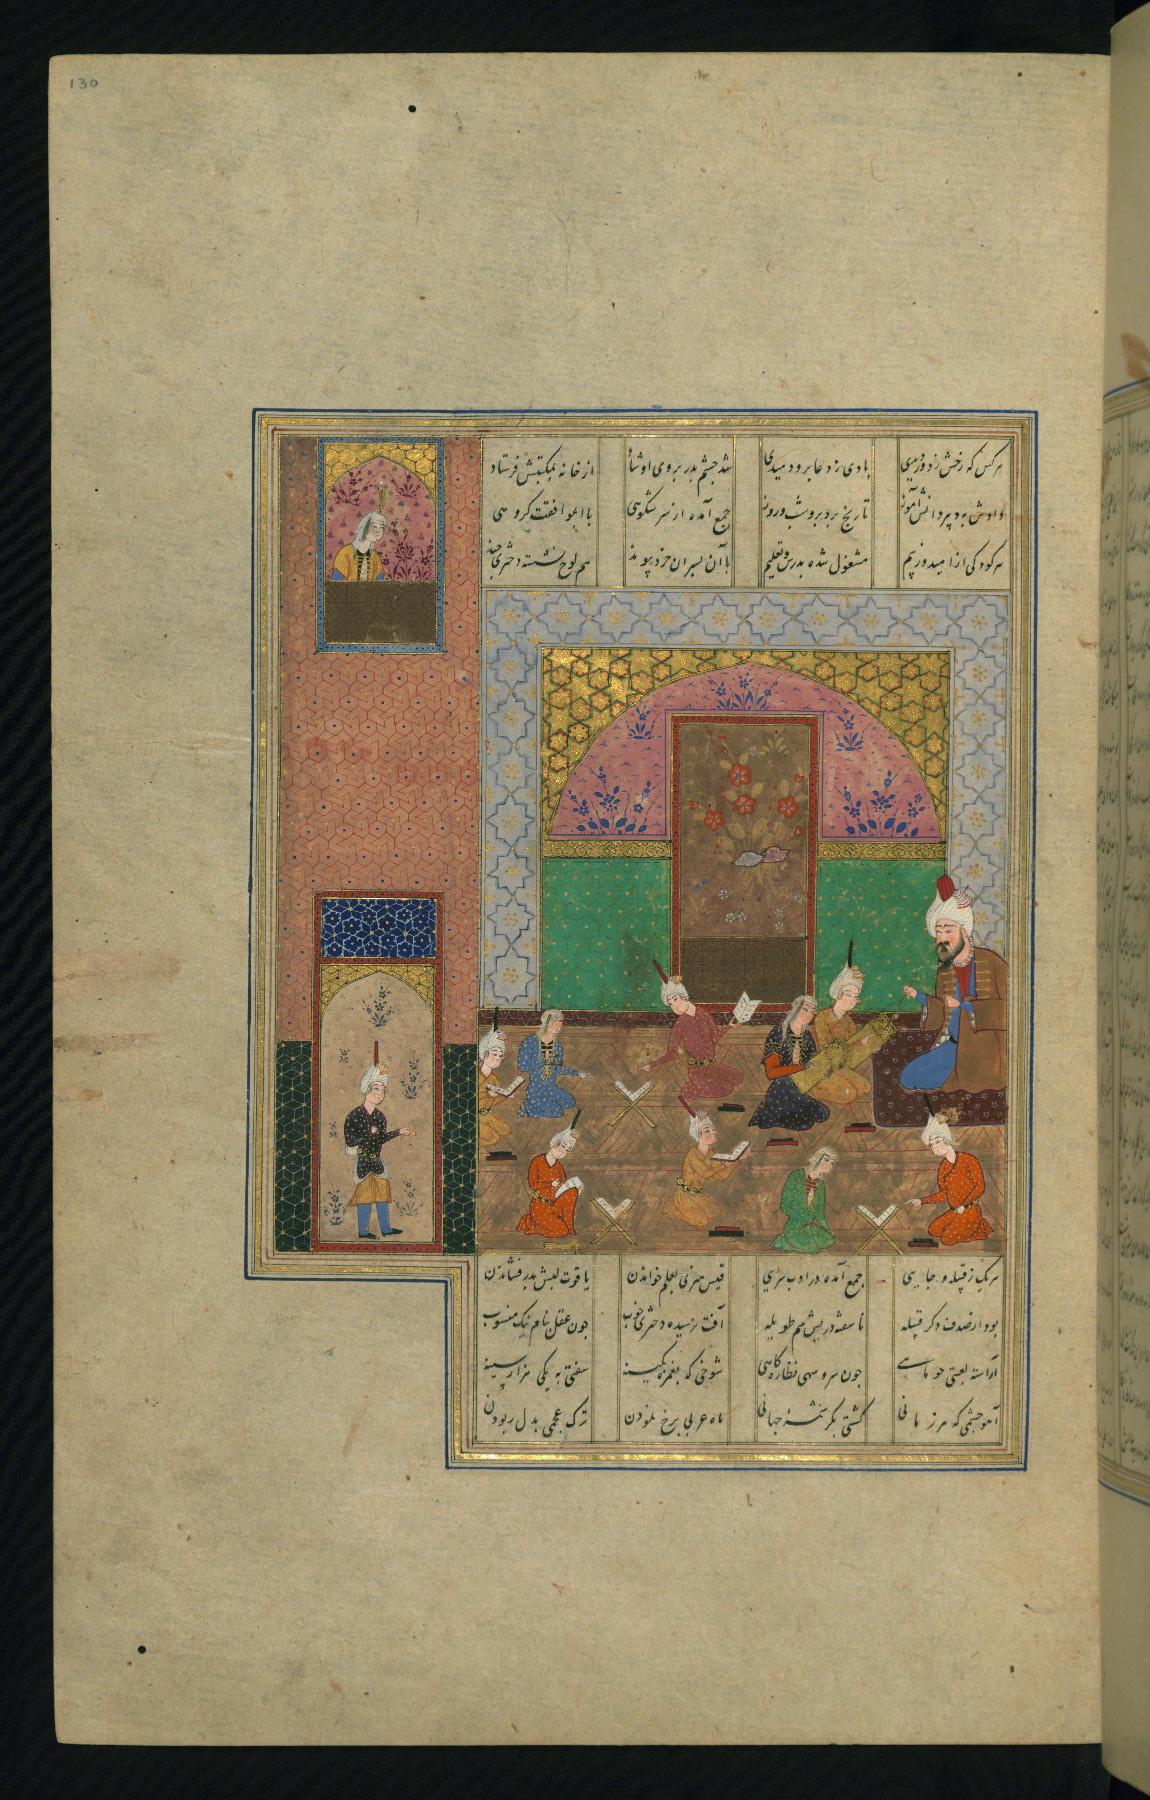 130
هر کس که رخش ز دور دیدی بادی ز دعا برو دمیدی شد چشم پدر بروی او شاد از خانه بمکتبش فرستاد
دادش به دبیر دانش آموز تا رنج برد برو شب و روز جمع آمده از سر شکوهی با او بموافقت گروهی
هر کودکی از امید و از بیم مشغول شده بدرس و تعلیم با آن پسران خرد پیوند هم لوح نشسته دختری چند
هر یک ز قبیله و جایی جمع آمده در ادب سرایی قیس هنری بعلم خواندن یاقوت لبش بدر فشاندن
بود از صدف دگر قبیله ناسفته دریش هم طویله آفت نرسیده دختری خوب چون عقل بنام نیک منسوب
آراسته لعبتی چو ماهی چون سرو سهی نظاره گاهی شوخی که بغمزه کمینه سفتی نه یکی هزار سینه
آهو چشمی که هر زمانی کشتی بکرشمه جهانی ماه عربی برخ نمودن ترک عجمی بدل ربودن